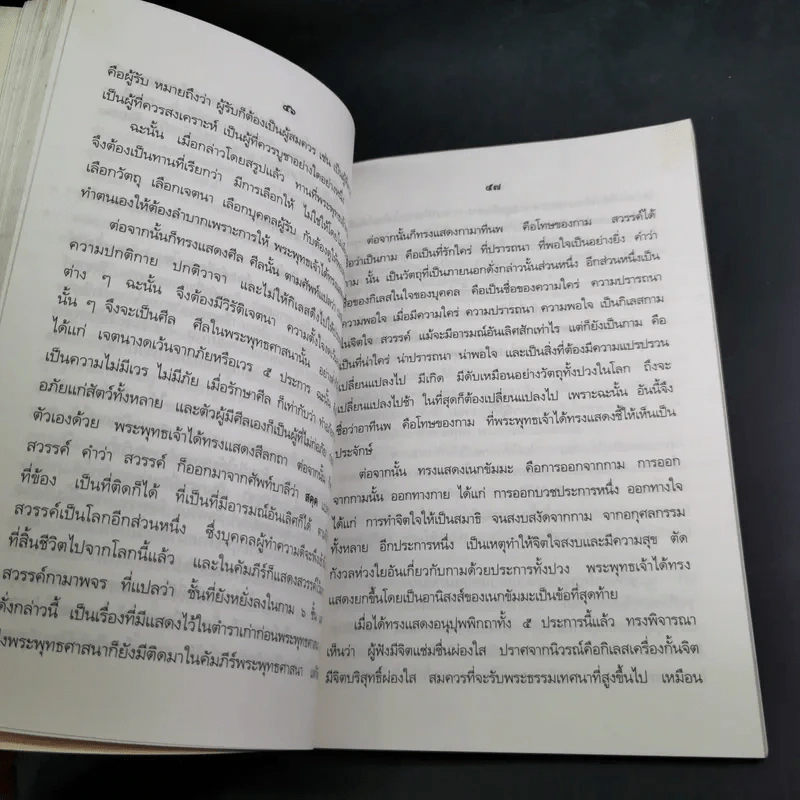 ๔๖
คือผู้รับ หมายถึงว่า ผู้รับก็ต้องเป็นผู้สมควร เช่น เป็นผู้
เป็นผู้ที่ควรสงเคราะห์ เป็นผู้ที่ควรบูชาอย่างใดอย่างหนึ่ง
ฉะนั้น เมื่อกล่าวโดยสรุปแล้ว ทานที่พระพุทธเจ้า
จึงต้องเป็นทานที่เรียกว่า มีการเลือกให้ ไม่ใช่ให้โดยไม่
เลือกวัตถุ เลือกเจตนา เลือกบุคคลผู้รับ กับต้องดูให้
ทำตนเองให้ต้องลำบากเพราะการให้ พระพุทธเจ้าได้ทรง
ต่อจากนั้นก็ทรงแสดงศีล ศีลนั้น ตามศัพท์แปลว่า
ความปกติกาย ปกติวาจา และไม่ให้กิเลสดึงไปให้
ต่าง ๆ ฉะนั้น จึงต้องมีวิรัติเจตนา ความตั้งใจงดเว้น
นั้น ๆ จึงจะเป็นศีล ศีลในพระพุทธศาสนานั้น อย่าง
ได้แก่ เจตนางดเว้นจากภัยหรือเวร ๕ ประการ ฉะนั้น
เป็นความไม่มีเวร ไม่มีภัย เมื่อรักษาศีล ก็เท่ากับว่า
อภัยแก่สัตว์ทั้งหลาย และตัวผู้มีศีลเองก็เป็นผู้ที่ไม่ก่อภัย
ตัวเองด้วย พระพุทธเจ้าได้ทรงแสดงสีลกถา ต่อจากนั้น
สวรรค์ คำว่า สวรรค์ ก็ออกมาจากศัพท์บาลีว่า สคฺค
ที่ข้อง เป็นที่ติดก็ได้ ที่เป็นที่มีอารมณ์อันเลิศก็ได้
สวรรค์เป็นโลกอีกส่วนหนึ่ง ซึ่งบุคคลผู้ทำความดีจะพึง
ที่สิ้นชีวิตไปจากโลกนี้แล้ว และในคัมภีร์ก็แสดงสวรรค์ไว้
สวรรค์กามาพจร ที่แปลว่า ชั้นที่ยังหยั่งลงในกาม ๖ ชั้น
ดังกล่าวนี้ เป็นเรื่องที่มีแสดงไว้ในตำราเก่าก่อนพระพุทธศาสนา
พระพุทธศาสนาก็ยังมีติดมาในคัมภีร์พระพุทธศาสนา
๔๗
ต่อจากนั้นก็ทรงแสดงกามาทีนพ คือโทษของกาม สวรรค์ได้
ชื่อว่าเป็นกาม คือเป็นที่รักใคร่ ที่ปรารถนา ที่พอใจเป็นอย่างยิ่ง คำว่า
กาม นั้น เป็นวัตถุที่เป็นภายนอกดังกล่าวนั้นส่วนหนึ่ง อีกส่วนหนึ่งเป็น
ชื่อของกิเลสในใจของบุคคล คือเป็นชื่อของความใคร่ ความปรารถนา
ความพอใจ เมื่อมีความใคร่ ความปรารถนา ความพอใจ เป็นกิเลสกาม
ในจิตใจ สวรรค์ แม้จะมีอารมณ์อันเลิศสักเท่าไร แต่ก็ยังเป็นกาม คือ
เป็นที่น่าใคร่ น่าปรารถนา น่าพอใจ และเป็นสิ่งที่ต้องมีความแปรปรวน
เปลี่ยนแปลงไป มีเกิด มีดับเหมือนอย่างวัตถุทั้งปวงในโลก ถึงจะ
เปลี่ยนแปลงไปช้า ในที่สุดก็ต้องเปลี่ยนแปลงไป เพราะฉะนั้น อันนี้จึง
ชื่อว่าอาทีนพ คือโทษของกาม ที่พระพุทธเจ้าได้ทรงแสดงชี้ให้เห็นเป็น
ประจักษ์
ต่อจากนั้น ทรงแสดงเนกขัมมะ คือการออกจากกาม การออก
จากกามนั้น ออกทางกาย ได้แก่ การออกบวชประการหนึ่ง ออกทางใจ
ได้แก่ การทำจิตใจให้เป็นสมาธิ จนสงบสงัดจากกาม จากอกุศลกรรม
ทั้งหลาย อีกประการหนึ่ง เป็นเหตุทำให้จิตใจสงบและมีความสุข ตัด
กังวลห่วงใยอันเกี่ยวกับกามด้วยประการทั้งปวง พระพุทธเจ้าได้ทรง
แสดงยกขึ้นโดยเป็นอานิสงส์ของเนกขัมมะเป็นข้อที่สุดท้าย
เมื่อได้ทรงแสดงอนุปุพพิกถาทั้ง ๕ ประการนี้แล้ว ทรงพิจารณา
เห็นว่า ผู้ฟังมีจิตแช่มชื่นผ่องใส ปราศจากนิวรณ์คือกิเลสเครื่องกั้นจิต
มีจิตบริสุทธิ์ผ่องใส สมควรที่จะรับพระธรรมเทศนาที่สูงขึ้นไป เหมือน